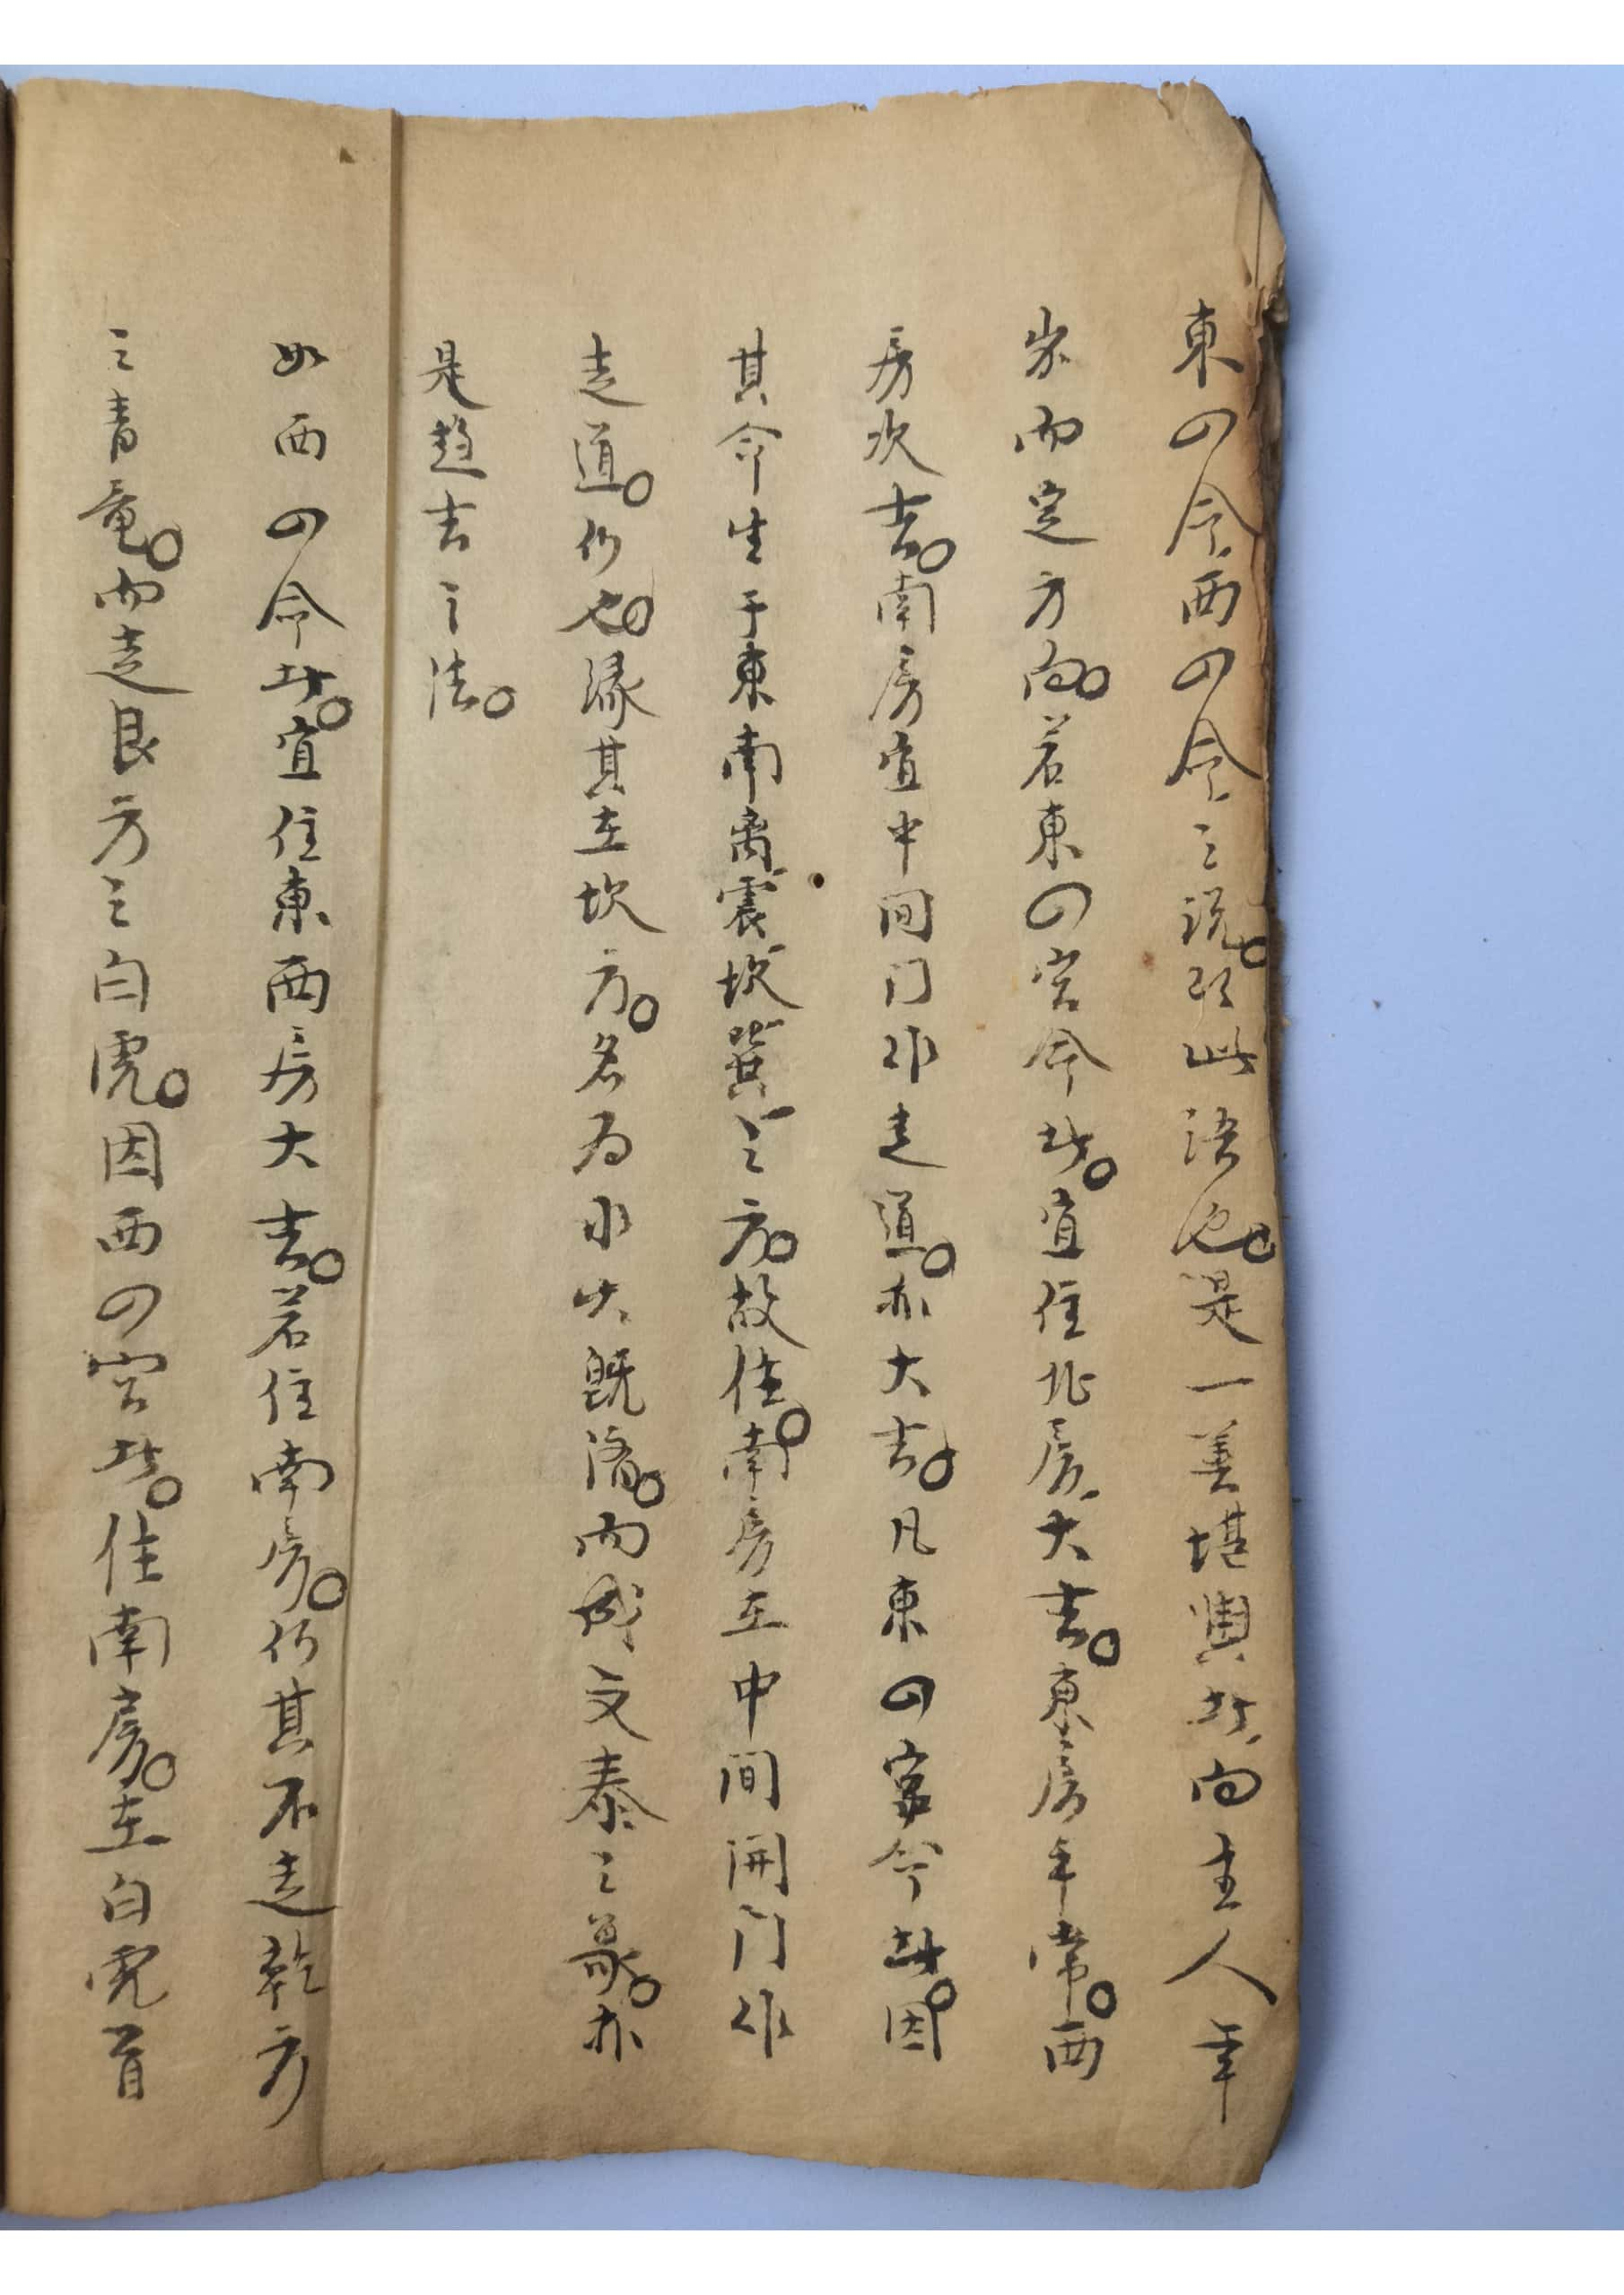 東四命西四命之説。即此語也。是一善堪輿者向主人年
家而定方向。若東四宮命者。宜住北房大吉。東房平常。西
房次吉。南房宜中间门作走道。亦大吉。凡東四宮命者。因
其命生于東南离震坎巽之方。故住。南房在中间開门作
走道。仍也。缘其在坎方。名为水火既济。而成交泰之象。亦
是趋吉之法。
如西四命者。宜住東西房大吉。若住南房。仍其不走乾方
之青竜。而走艮方之白虎。因西四宮者。住南房。在白虎首